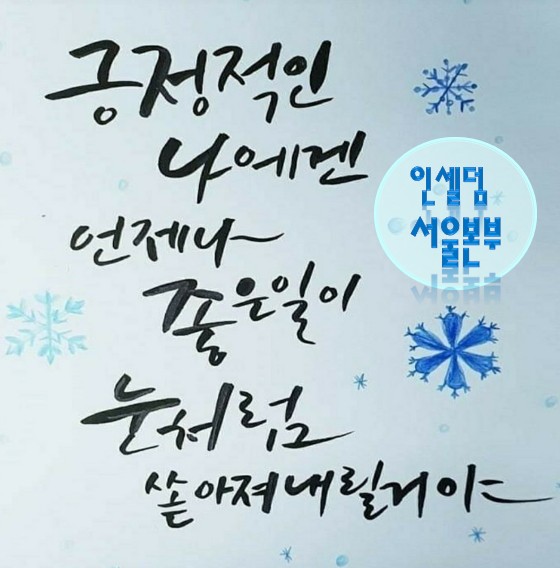 긍정적인
나에겐
언제나~
좋은일이
눈처럼
쏟아져내릴거야~
인셀덤
서울본부